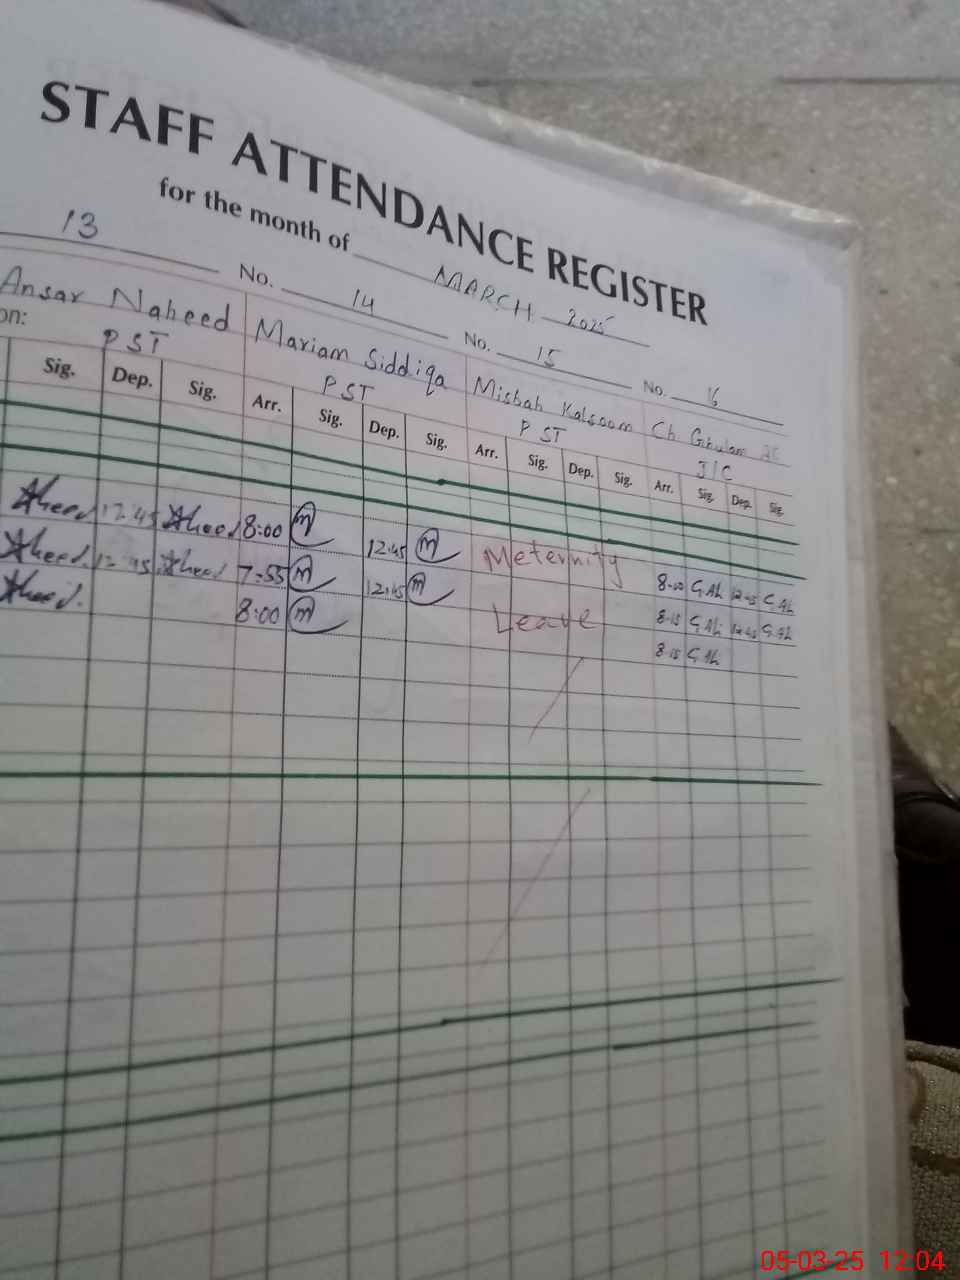 STAFF ATTENDANCE REGISTER
for the month of MARCH 2025
13
No. 14
No. 15
No. 16
Ansar Naheed
Mariam Siddiqa
Misbah Kalsoom
Ch Ghulam
on:
PST
PST
PST
Sig. Dep. Sig. Arr. Sig. Dep. Sig. Arr. Sig. Dep. Sig. Arr. Sig. Dep. Sig.
12:45 8:00 m 12:45 m Meternity 8:00 G.Ah 12:45 G.Ah
12:45 7:55 m 12:45 m Leave 8:15 G.Ah 12:45 G.Ah
8:00 m 8:15 G.Ah
05-03-25 12:04